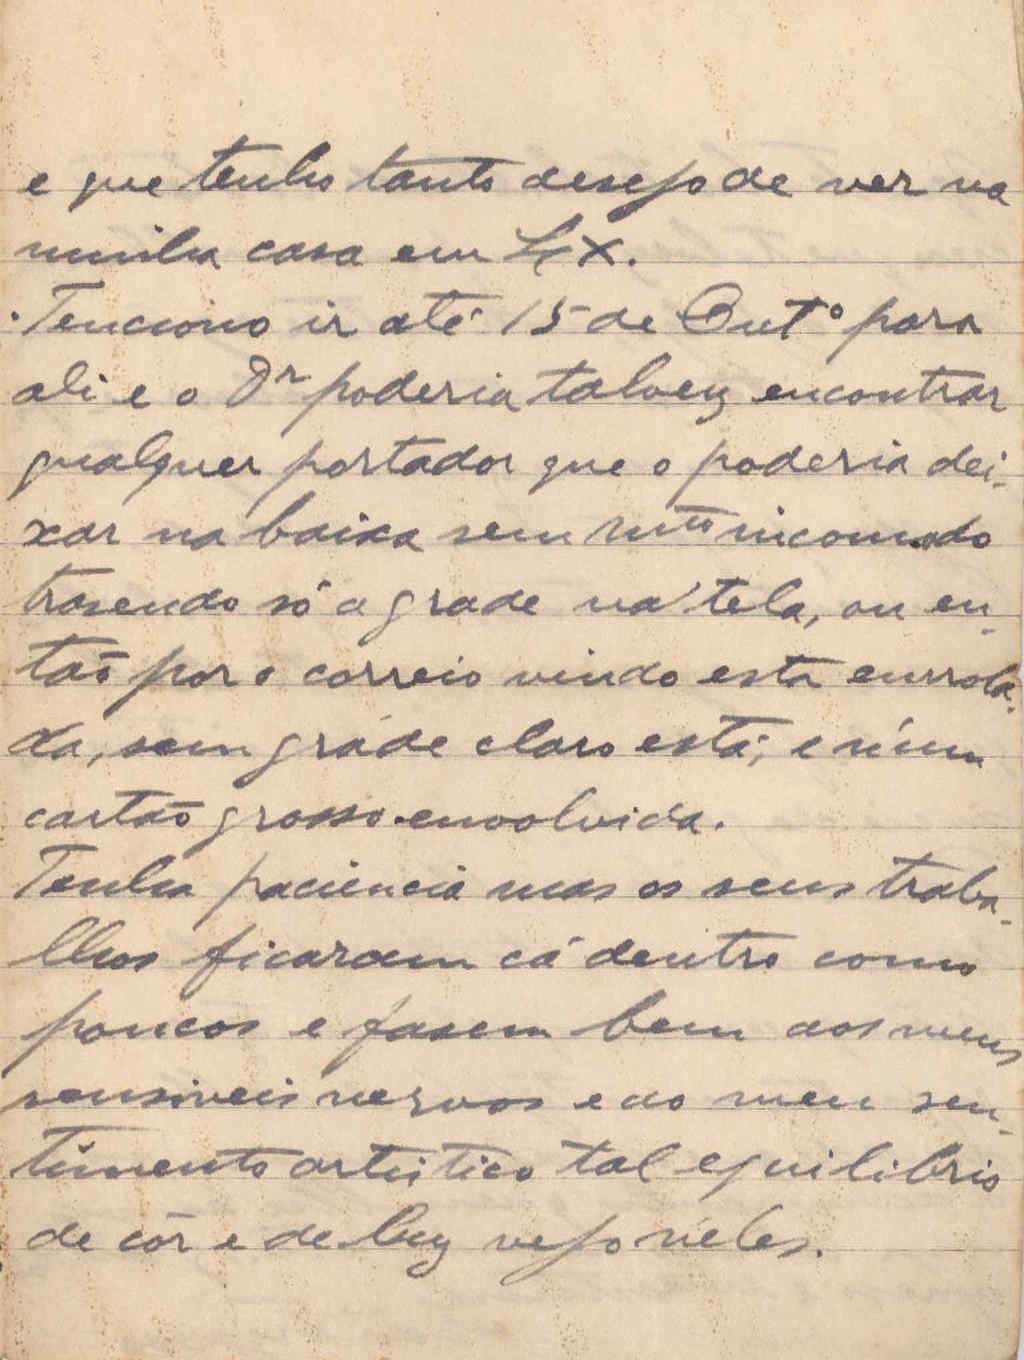 e que tenho tanto desejo de ver na
minha casa em Lx.
Tenciono ir até 15 de Outº para
ali e o Dr poderia talvez encontrar
qualquer portador que o poderia dei-
xar na baixa sem mtº incomodo
trasendo só a grade na tela, ou en-
tão por o correio vindo esta enrrola-
da, sem grade claro está; e n'um
cartão grosso envolvida.
Tenha paciencia mas os seus traba-
lhos ficaram cá dentro como
poucos e fasem bem aos meus
sensiveis nervos e ao meu sen-
timento artistico tal equilibrio
de côr e de luz vejo n'eles.